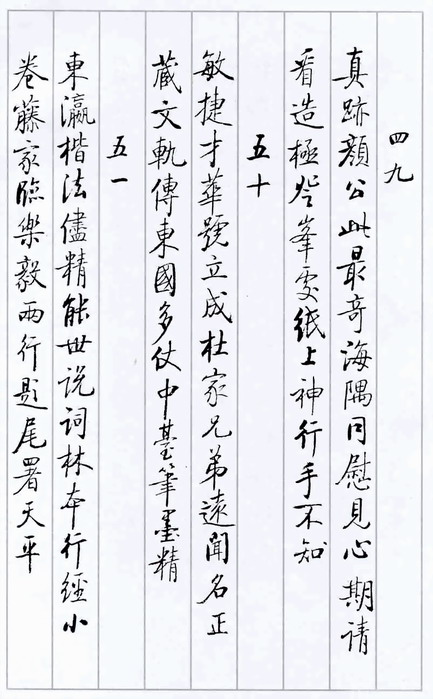 四九
真跡顏公此最奇海隅同慰見心期請
看造極登峯處紙上神行手不知
五十
敏捷才華號立成杜家兄弟遠聞名正
藏文軌傳東國多仗中臺筆墨精
五一
東瀛楷法儘精能世說詞林本行經小
卷藤家臨樂毅兩行題尾署天平